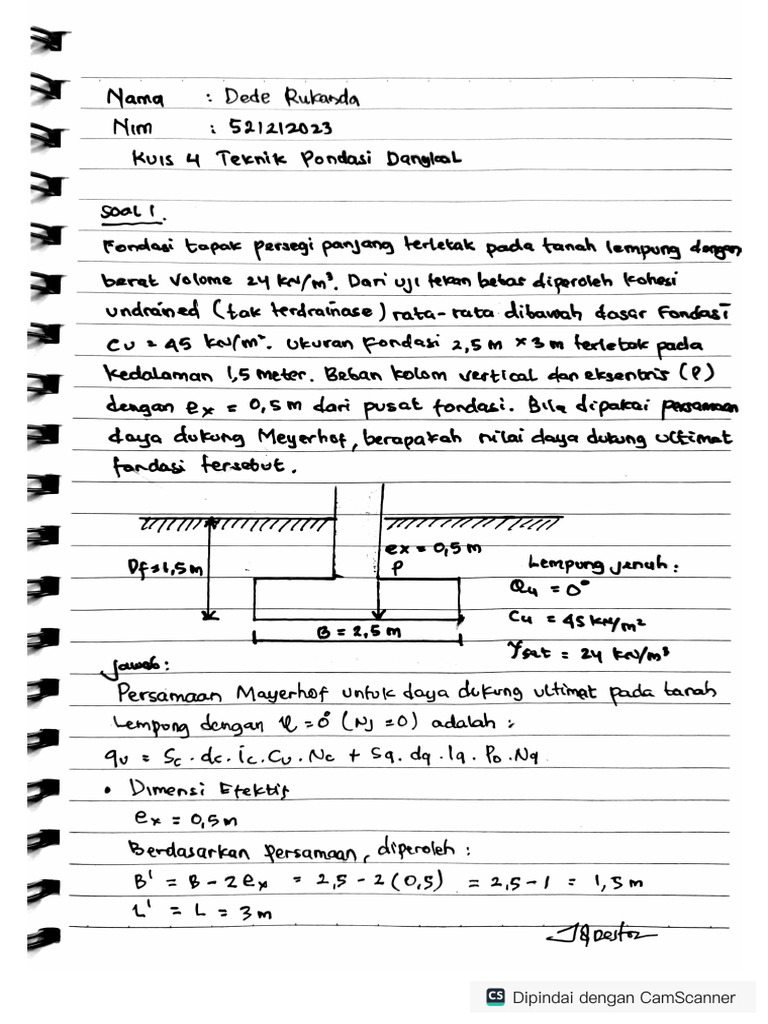 Nama : Dede Rukanda
Nim : 521212023
Kuis 4 Teknik Pondasi Dangkal
Soal 1.
Fondasi tapak persegi panjang terletak pada tanah lempung dengan
berat volume 24 kN/m³. Dari uji tekan bebas diperoleh kohesi
undrained (tak terdrainase) rata-rata dibawah dasar fondasi
Cu = 45 kN/m². Ukuran fondasi 2,5 m × 3 m terletak pada
kedalaman 1,5 meter. Beban kolom vertical dan eksentris (P)
dengan ex = 0,5 m dari pusat fondasi. Bila dipakai persamaan
daya dukung Meyerhof, berapakah nilai daya dukung ultimat
fondasi tersebut.
Df = 1,5 m
ex = 0,5 m
P
B = 2,5 m
Lempung jenuh :
Qu = 0°
Cu = 45 kN/m²
γsat = 24 kN/m³
Jawab :
Persamaan Mayerhof untuk daya dukung ultimat pada tanah
Lempung dengan φ = 0° (Nγ = 0) adalah :
qu = Sc . dc . ic . Cu . Nc + Sq . dq . Iq . Po . Nq
• Dimensi Efektif
ex = 0,5 m
Berdasarkan persamaan, diperoleh :
B' = B - 2ex = 2,5 - 2(0,5) = 2,5 - 1 = 1,5 m
L' = L = 3 m
CS Dipindai dengan CamScanner